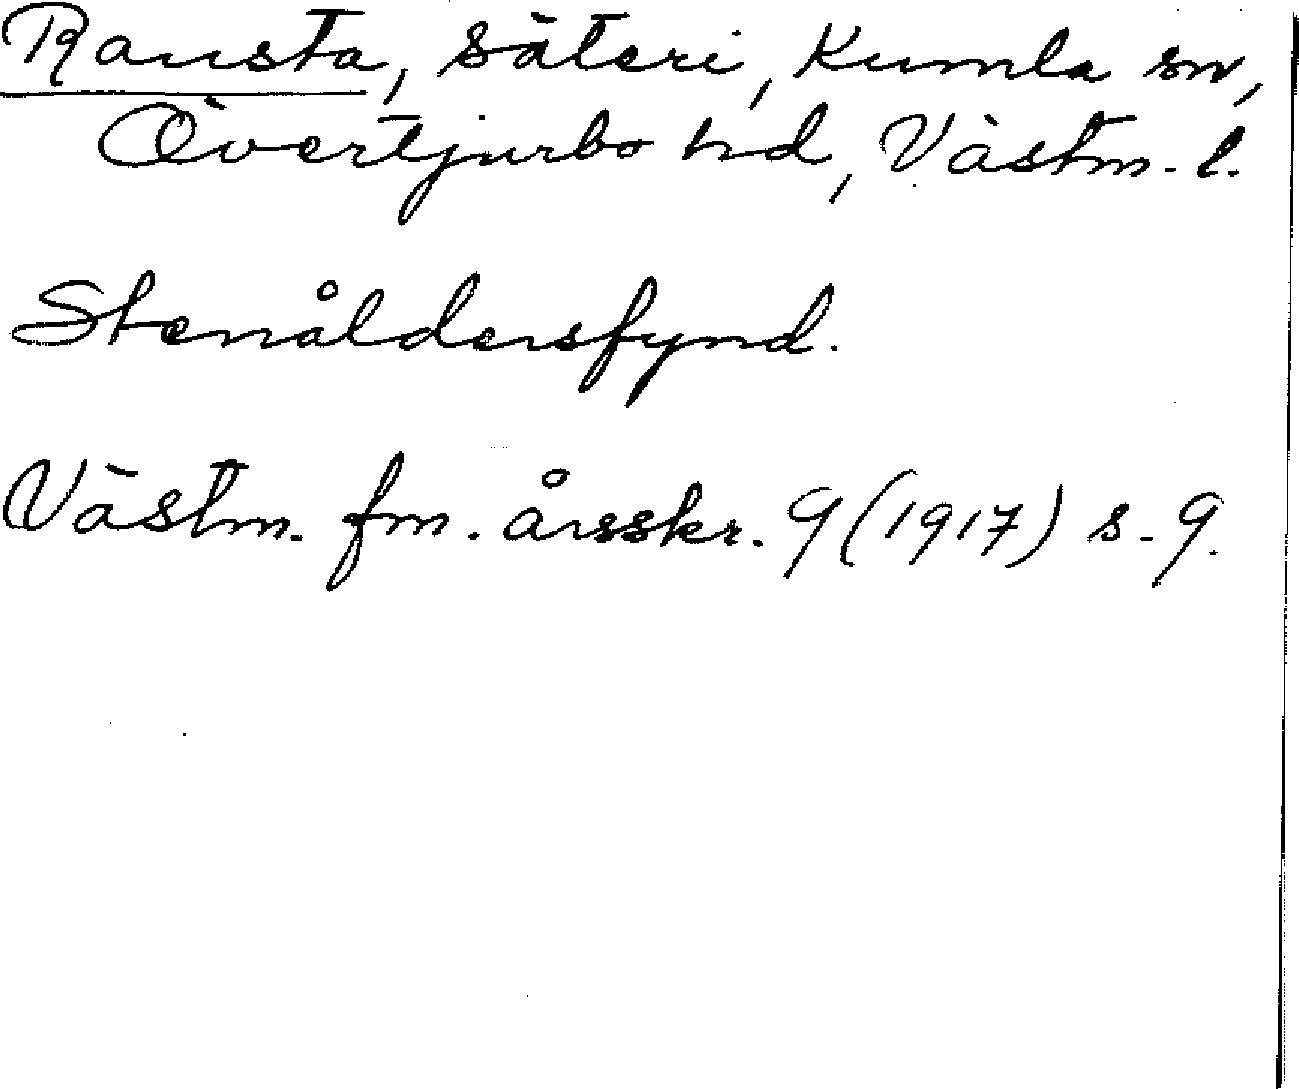 Rausta, säteri, Kumla sn,
Övertjurbo hd, Västm. l.
Stenåldersfynd.
Västm. fm. årsskr. 9 (1917) s. 9.